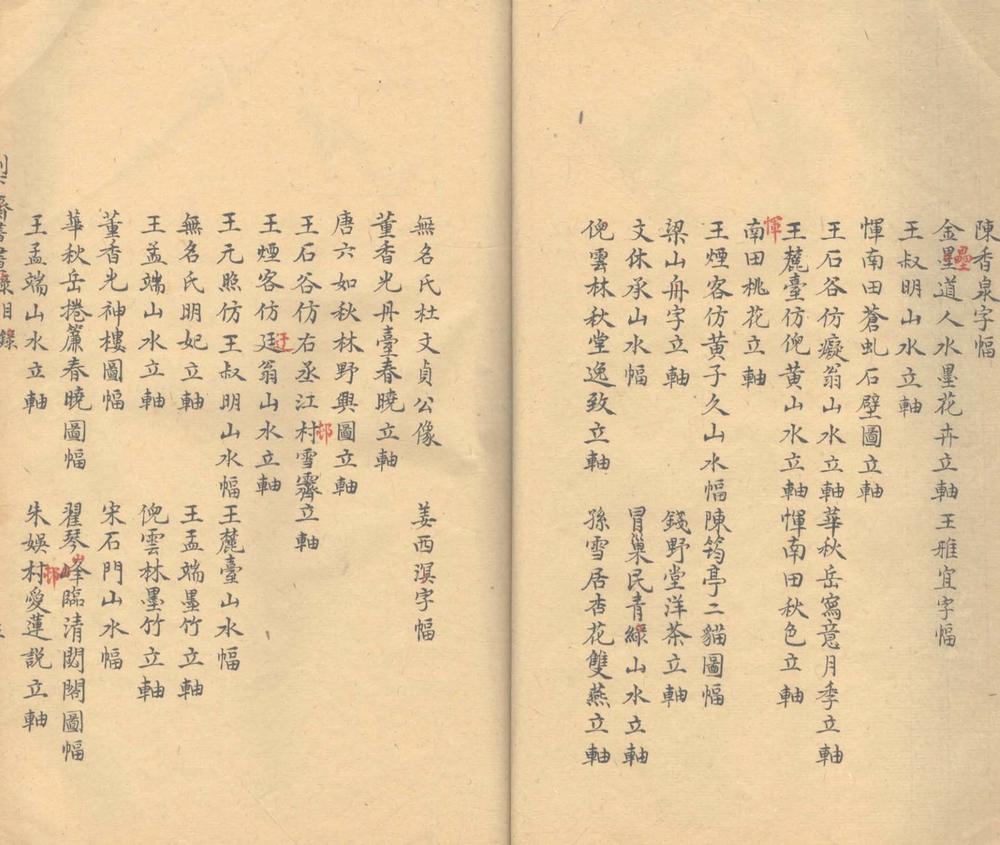 陳香泉字幅
金墨道人水墨花卉立軸 王雅宜字幅
壘
王叔明山水立軸
惲南田蒼虬石壁圖立軸
王石谷仿癡翁山水立軸 華秋岳寫意月季立軸
王麓臺仿倪黃山水立軸 惲南田秋色立軸
惲
南田桃花立軸
王煙客仿黃子久山水幅 陳筠亭二貓圖幅
梁山舟字立軸 錢野堂洋茶立軸
文休承山水幅 冒巢民青綠山水立軸
倪雲林秋堂逸致立軸 孫雪居杏花雙燕立軸
無名氏杜文貞公像 姜西溟字幅
董香光丹臺春曉立軸
唐六如秋林野興圖立軸
王石谷仿右丞江村雪霽立軸
邨
王煙客仿廷翁山水立軸
迂
王元照仿王叔明山水幅 王麓臺山水幅
無名氏明妃立軸 王孟端墨竹立軸
王孟端山水立軸 倪雲林墨竹立軸
董香光神樓圖幅 宋石門山水幅
華秋岳捲簾春曉圖幅 翟琴峰臨清閟閣圖幅
王孟端山水立軸 朱娛村愛蓮說立軸
邨
齋書畫錄目錄